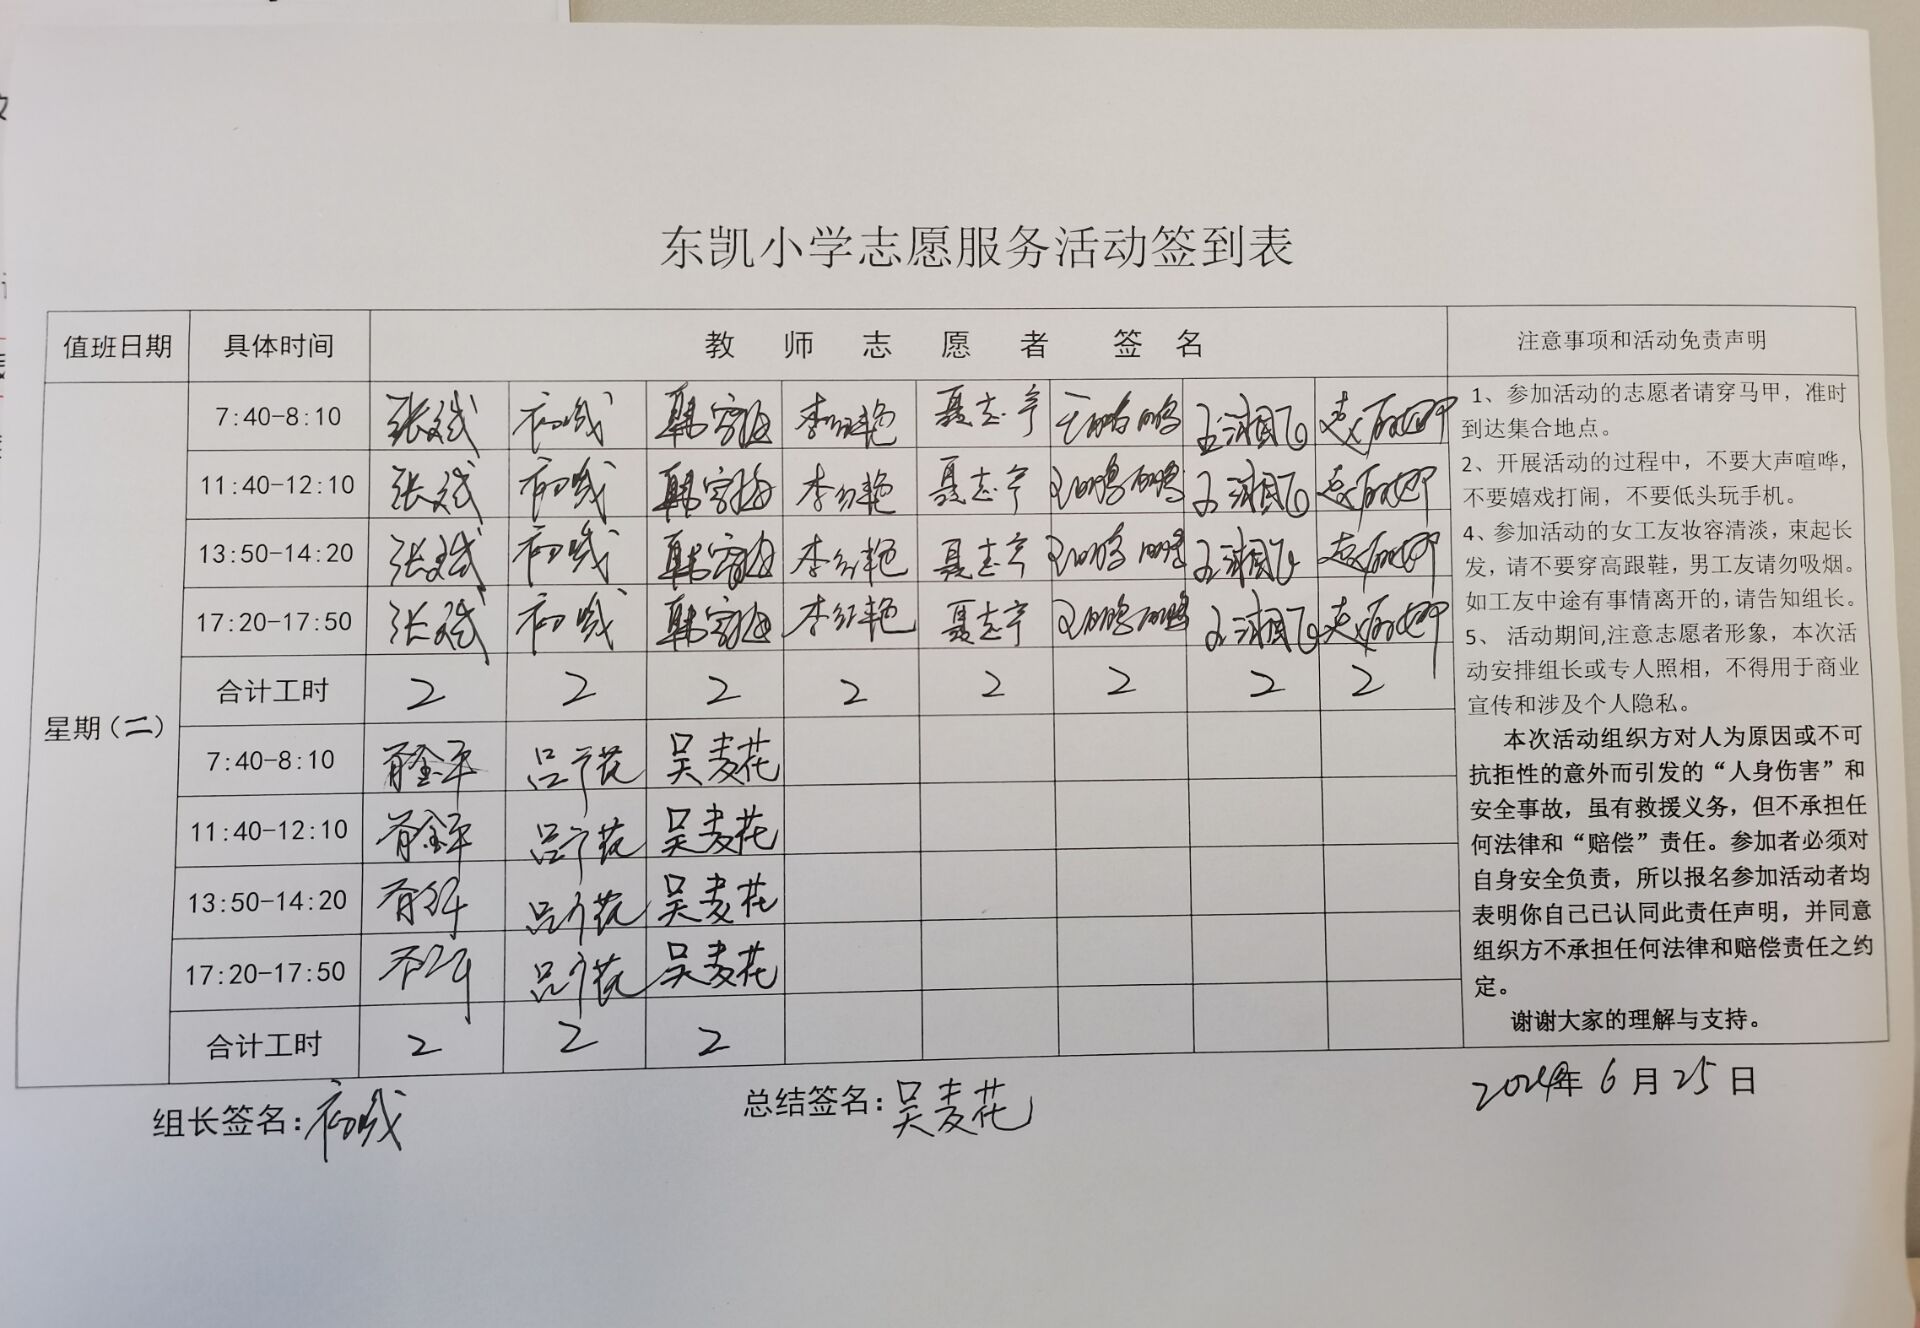 东凯小学志愿服务活动签到表
值班日期 具体时间 教师志愿者签名 注意事项和活动免责声明
星期(二)
7:40-8:10 张斌 李红艳 聂志宁 王鹏鹏
11:40-12:10 张斌 李红艳 聂志宁 王鹏鹏
13:50-14:20 张斌 李红艳 聂志宁 王鹏鹏
17:20-17:50 张斌 李红艳 聂志宁 王鹏鹏
合计工时 2 2 2 2 2 2 2 2
7:40-8:10 吴麦花
11:40-12:10 吴麦花
13:50-14:20 吴麦花
17:20-17:50 吴麦花
合计工时 2 2 2
1、参加活动的志愿者请穿马甲，准时
到达集合地点。
2、开展活动的过程中，不要大声喧哗，
不要嬉戏打闹，不要低头玩手机。
4、参加活动的女工友妆容清淡，束起长
发，请不要穿高跟鞋，男工友请勿吸烟。
如工友中途有事情离开的，请告知组长。
5、 活动期间,注意志愿者形象，本次活
动安排组长或专人照相，不得用于商业
宣传和涉及个人隐私。
本次活动组织方对人为原因或不可
抗拒性的意外而引发的“人身伤害”和
安全事故，虽有救援义务，但不承担任
何法律和“赔偿”责任。参加者必须对
自身安全负责，所以报名参加活动者均
表明你自己已认同此责任声明，并同意
组织方不承担任何法律和赔偿责任之约
定。
谢谢大家的理解与支持。
组长签名:
总结签名:吴麦花
2024年6月25日